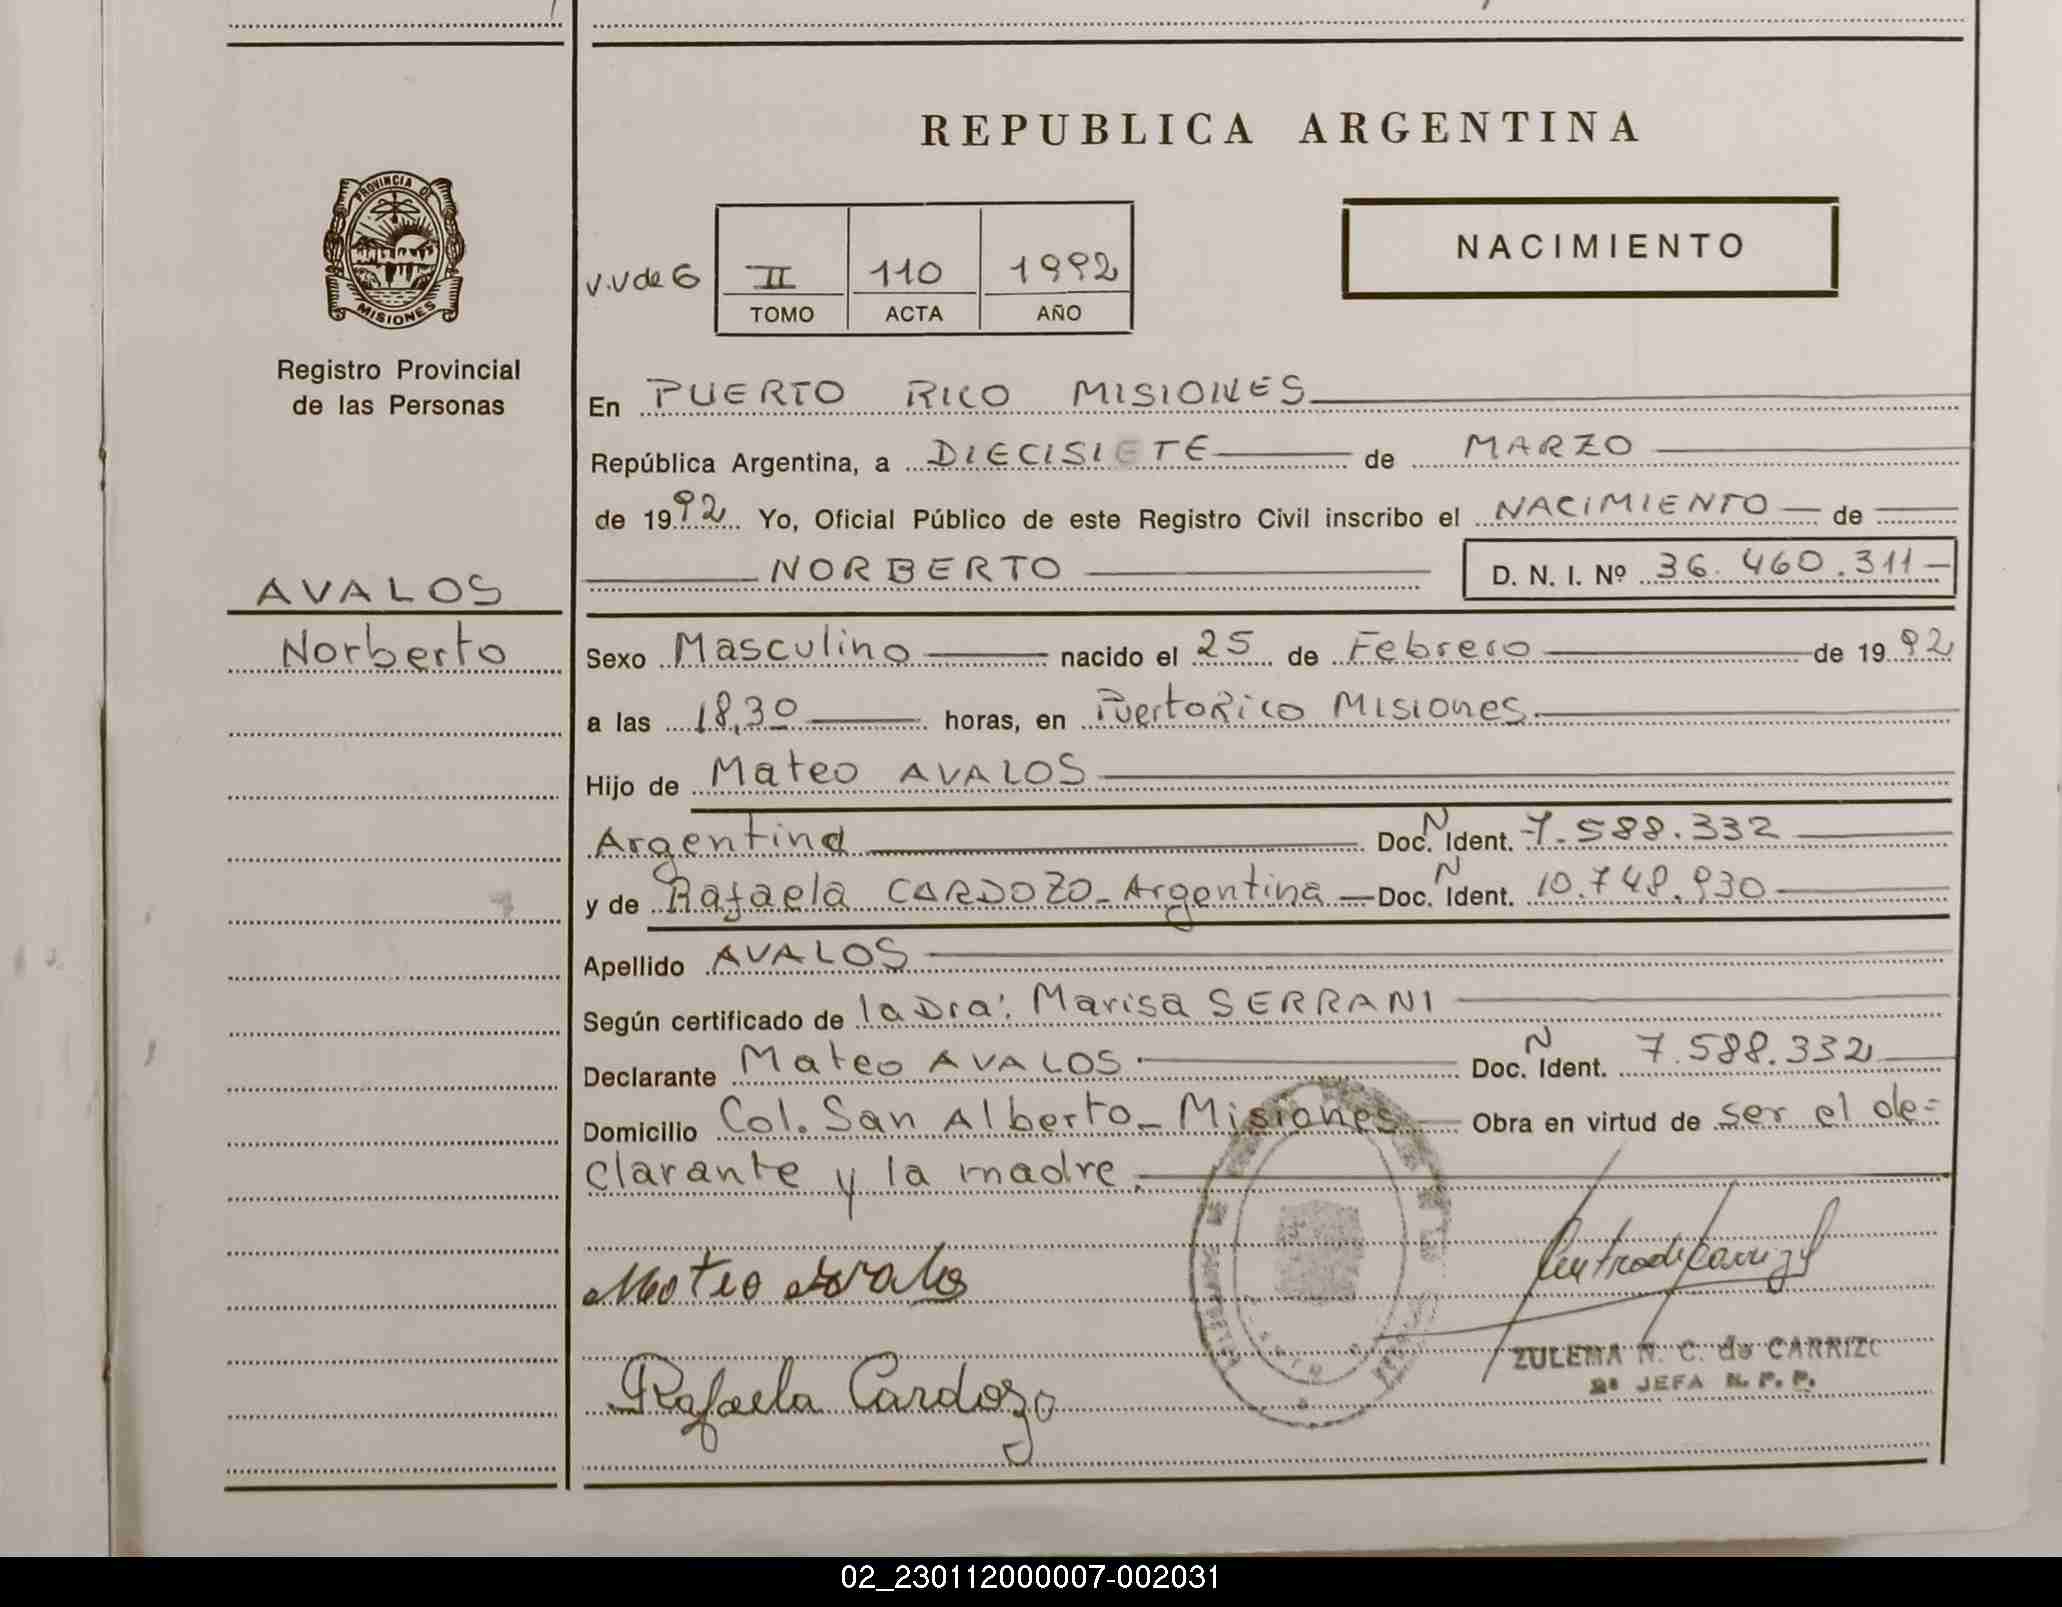 REPUBLICA ARGENTINA
PROVINCIA DE
MISIONES
Registro Provincial
de las Personas
NACIMIENTO
V.V de 6 II 110 1992
TOMO ACTA AÑO
En PUERTO RICO MISIONES
República Argentina, a DIECISIETE de MARZO
de 1992 Yo, Oficial Público de este Registro Civil inscribo el NACIMIENTO de
NORBERTO D. N. I. Nº 36.460.311
AVALOS
Norberto
Sexo Masculino nacido el 25 de Febrero de 1992
a las 18,30 horas, en Puerto Rico Misiones
Hijo de Mateo AVALOS
Argentina Doc. N Ident. 7.588.332
y de Rafaela CARDOZO - Argentina Doc. N Ident. 10.748.930
Apellido AVALOS
Según certificado de la Dra: Marisa SERRANI
Declarante Mateo AVALOS Doc. N Ident. 7.588.332
Domicilio Col. San Alberto - Misiones Obra en virtud de ser el de=
clarante y la madre.
Mateo Avalos
ZULEMA N. C. de CARRIZO
2ª JEFA R. P. P.
Rafaela Cardozo
02_230112000007-002031